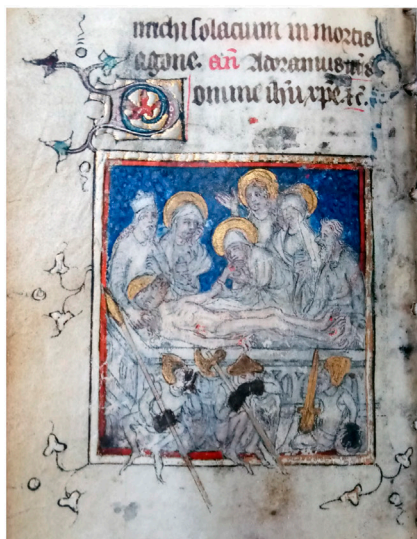 michi solacium in mortis
agone. an̄ Adoramus te
Domine ihu xpe. ꝛc̄.